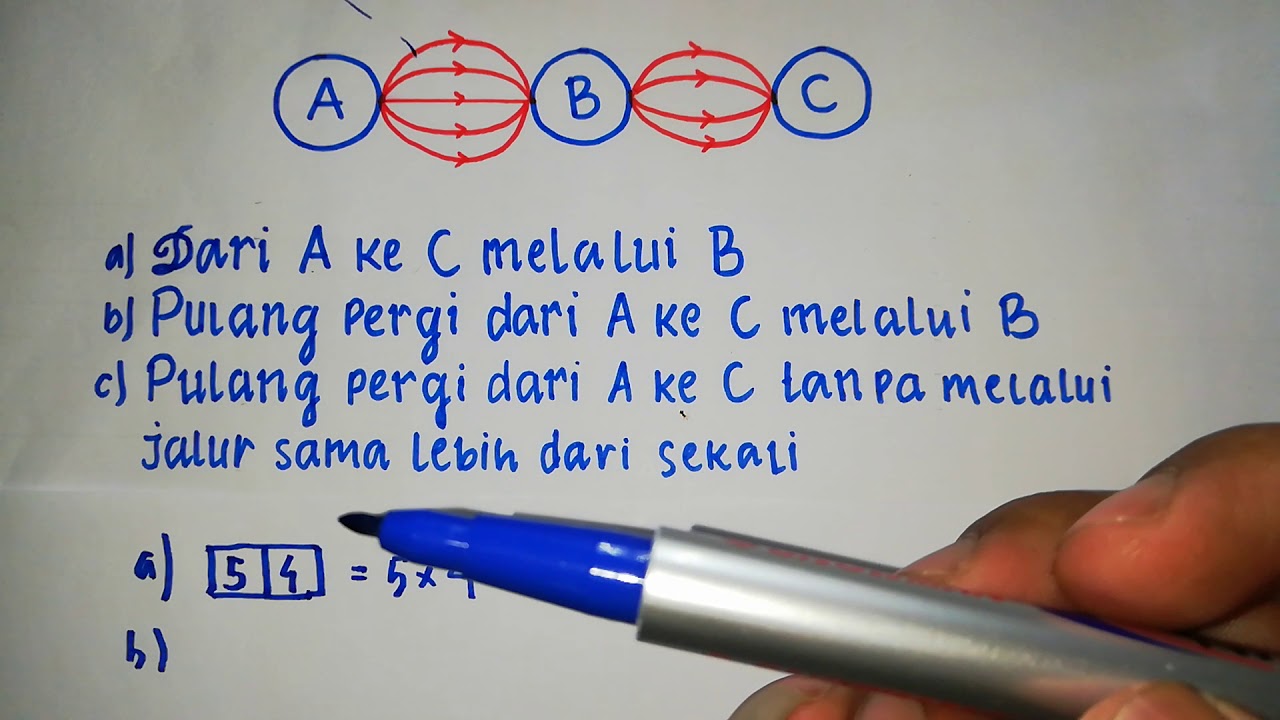 A B C
a) Dari A ke C melalui B
b) Pulang pergi dari A ke C melalui B
c) Pulang pergi dari A ke C tanpa melalui
jalur sama lebih dari sekali
a) 5 4 = 5 x 4
b)